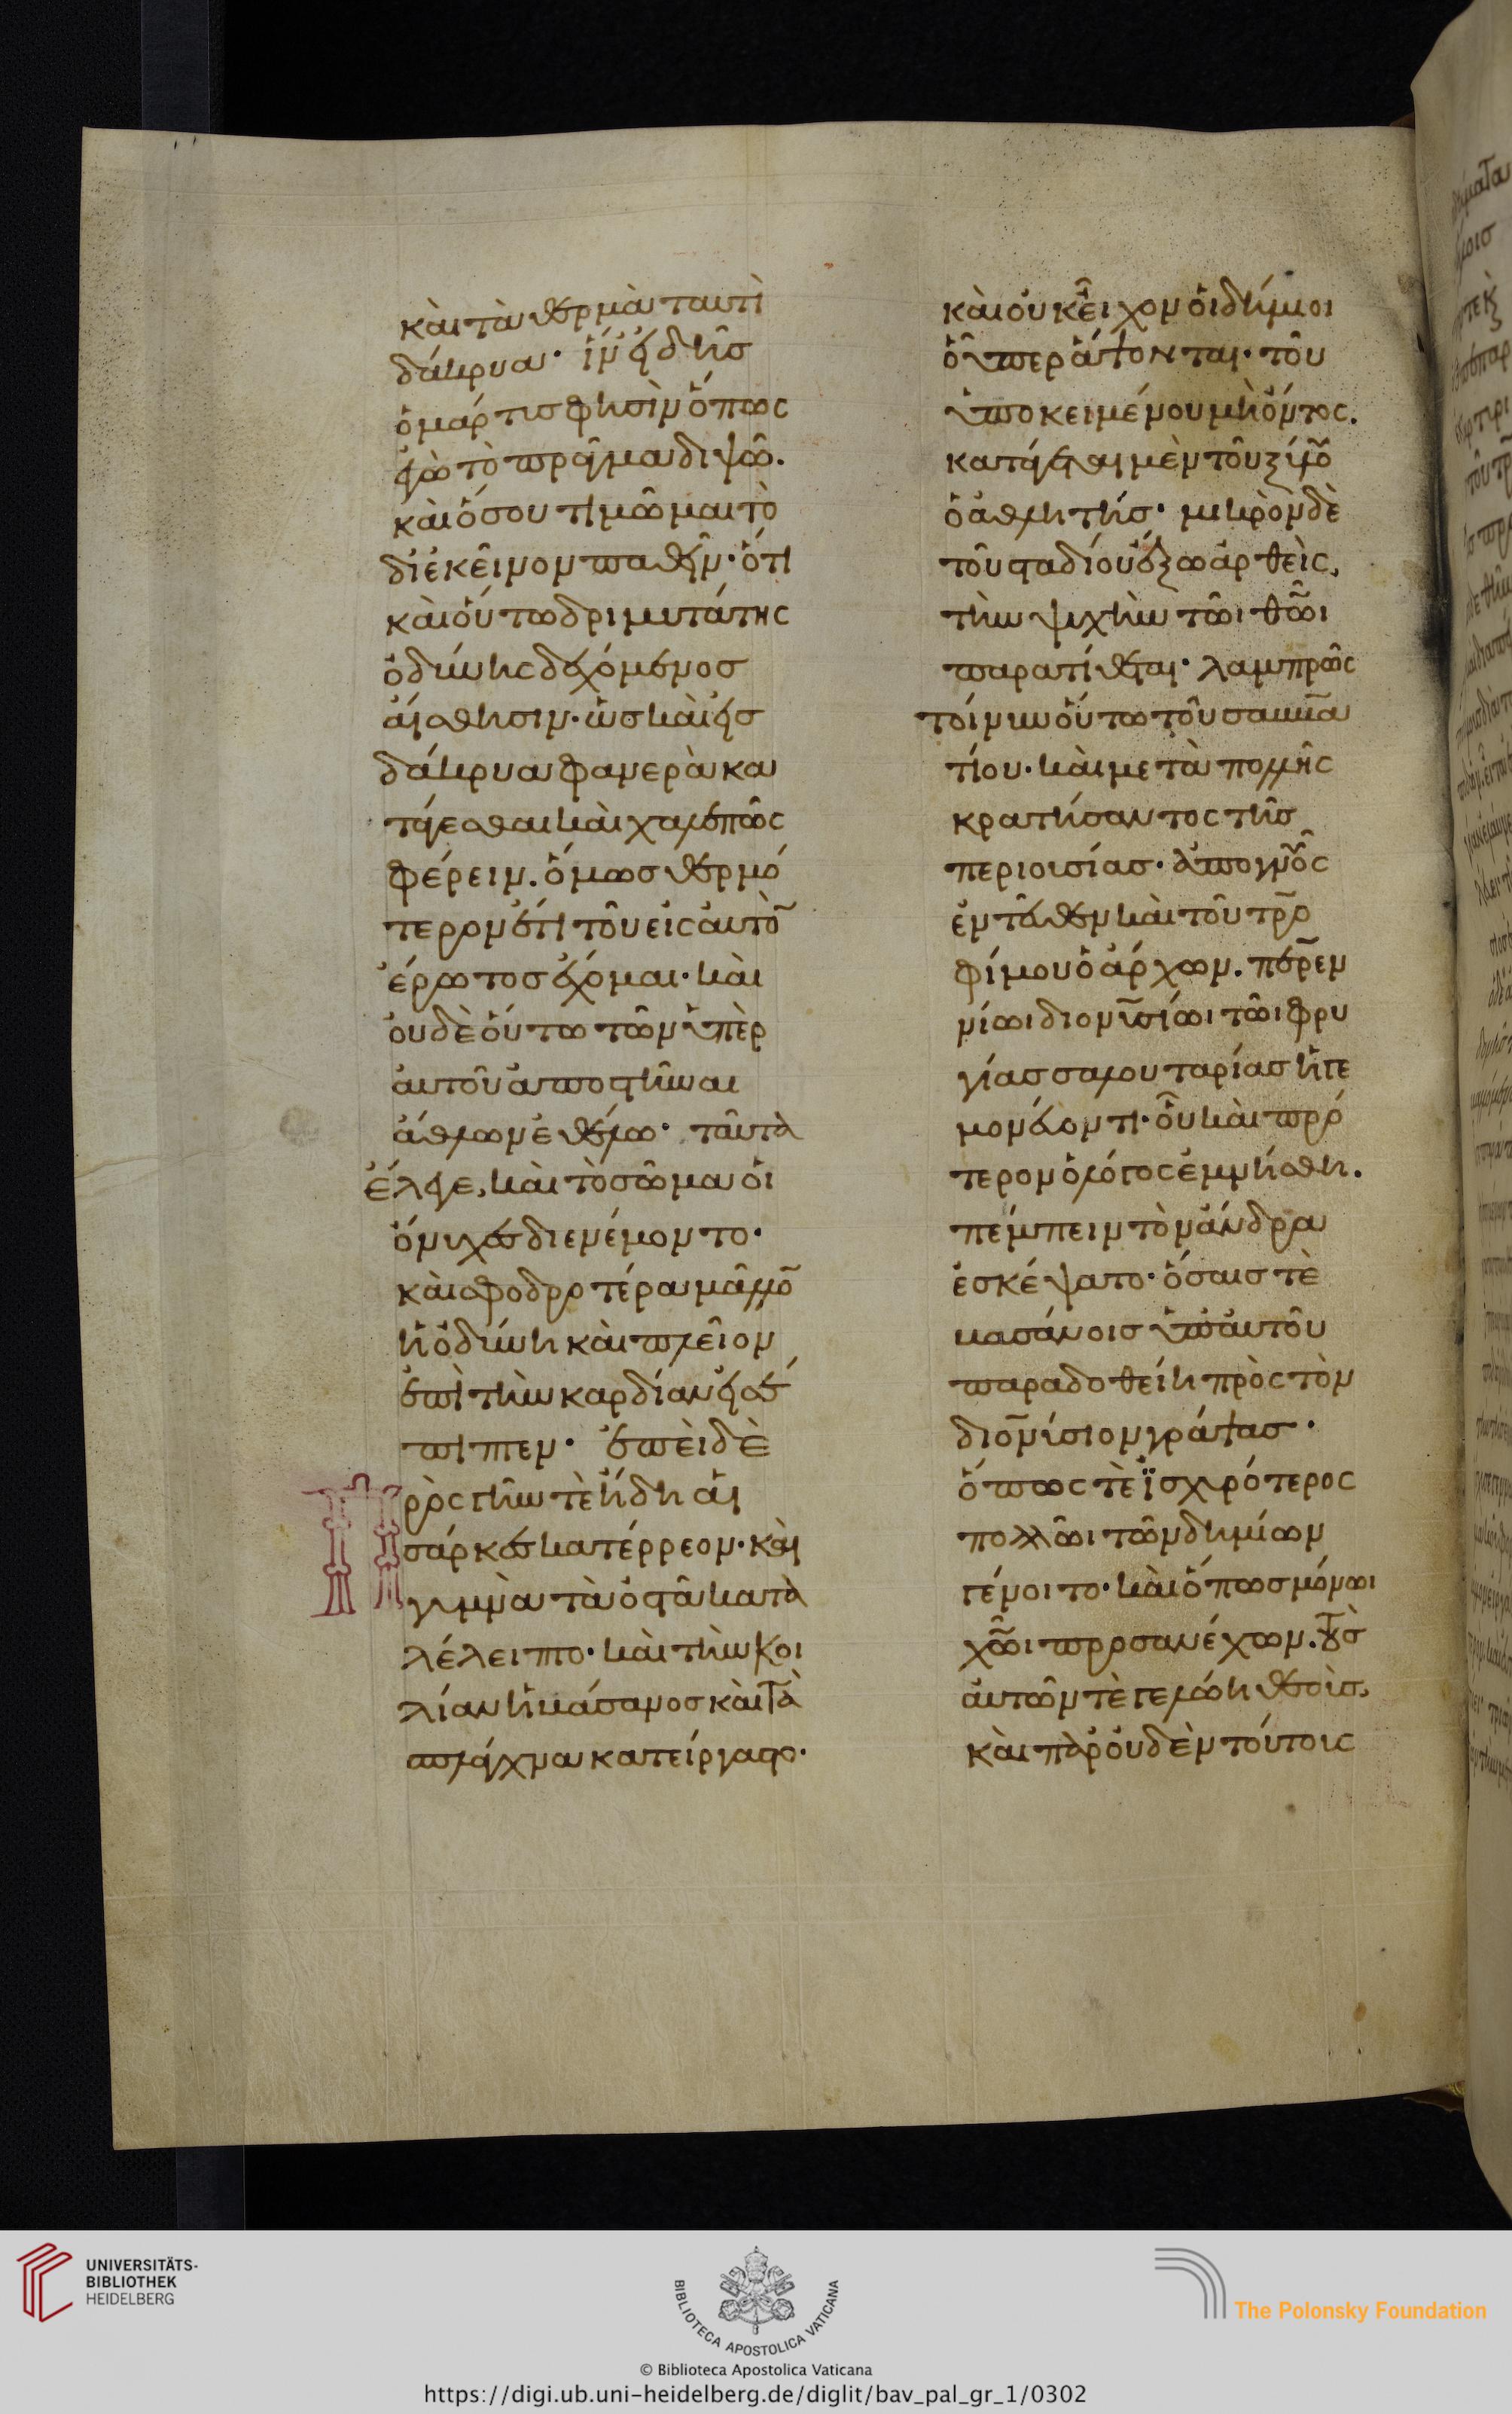 καὶ τὰ θερμὰ ταυτὶ
δάκρυα· ἵν' εἰδῆς
ὁ μάρτις φησὶν ὅπως
ἐγὼ τὸ πρᾶγμα διψῶ.
καὶ ὅσου τιμῶμαι τὸ
δι' ἐκεῖνον παθεῖν· ὅτι
καὶ οὕτω δριμυτάτης
ὀδύνης δεχόμενος
αἴσθησιν· ὡς καὶ εἰς
δάκρυα φανερὰ κα
τάγεσθαι καὶ χαλεπῶς
φέρειν. ὅμως θερμό
τερον ἔτι τοῦ εἰς αὐτὸ
ἔρωτος ἔχομαι· καὶ
οὐδὲ οὕτω τῶν ὑπὲρ
αὐτοῦ ἀποστῆναι
ἄθλων ἐθέλω· ταῦτα
ἔλεγε, καὶ τὸ σῶμα οἱ
ὄνυχες διενέμοντο·
καὶ σφοδροτέρα μᾶλλο
ἡ ὀδύνη καὶ πλεῖον
ἐπὶ τὴν καρδίαν εἰσέ
πιπτεν· ἐπεὶ δὲ
πρὸς γῆν τὲ ἤδη αἱ
σάρκες κατέρρεον· καὶ
γυμνὰ τὰ ὀστᾶ κατα
λέλειπτο· καὶ τὴν κοι
λίαν ἡ βάσανος καὶ τὰ
σπλάγχνα κατείργαστο·
καὶ οὐκ εἶχον οἱ δήμιοι
οὗπερ ἅψονται· τοῦ
ὑποκειμένου μὴ ὄντος.
κατάγεται μὲν τοῦ ξύλου
ὁ ἀθλητής· μικρὸν δὲ
τοῦ σταδίου ἔξω ἀρθεὶς,
τὴν ψυχὴν τῶι θεῶι
παρατίθεται· λαμπρῶς
τοίνυν οὕτω τοῦ σαββα
τίου· καὶ μετὰ πολλῆς
κρατήσαντος τῆς
περιουσίας· ἀπογνοὺς
ἐντεῦθεν καὶ τοῦ τρο
φίμου ὁ ἄρχων. περεν
νίωι διονυσίωι τῶι φρυ
γίας σαλουταρίας ἡγε
μονεύοντι· οὗ καὶ πρό
τερον ὁ λόγος ἐμνήσθη.
πέμπειν τὸν ἄνδρα
ἐσκέψατο· ὅσαις τὲ
βασάνοις ὑπ' αὐτοῦ
παραδοθείη πρὸς τὸν
διονύσιον γράψας·
ὅπως τὲ ἰσχυρότερος
πολλῶι τῶν δημίων
γένοιτο· καὶ ὅπως μόνωι
χῶι προσανέχων. τοὺς
αὐτῶν τὲ γελώη θεοὺς,
καὶ παρ' οὐδὲν τούτοις
UNIVERSITÄTS-
BIBLIOTHEK
HEIDELBERG
BIBLIOTECA APOSTOLICA VATICANA
The Polonsky Foundation
© Biblioteca Apostolica Vaticana
https://digi.ub.uni-heidelberg.de/diglit/bav_pal_gr_1/0302